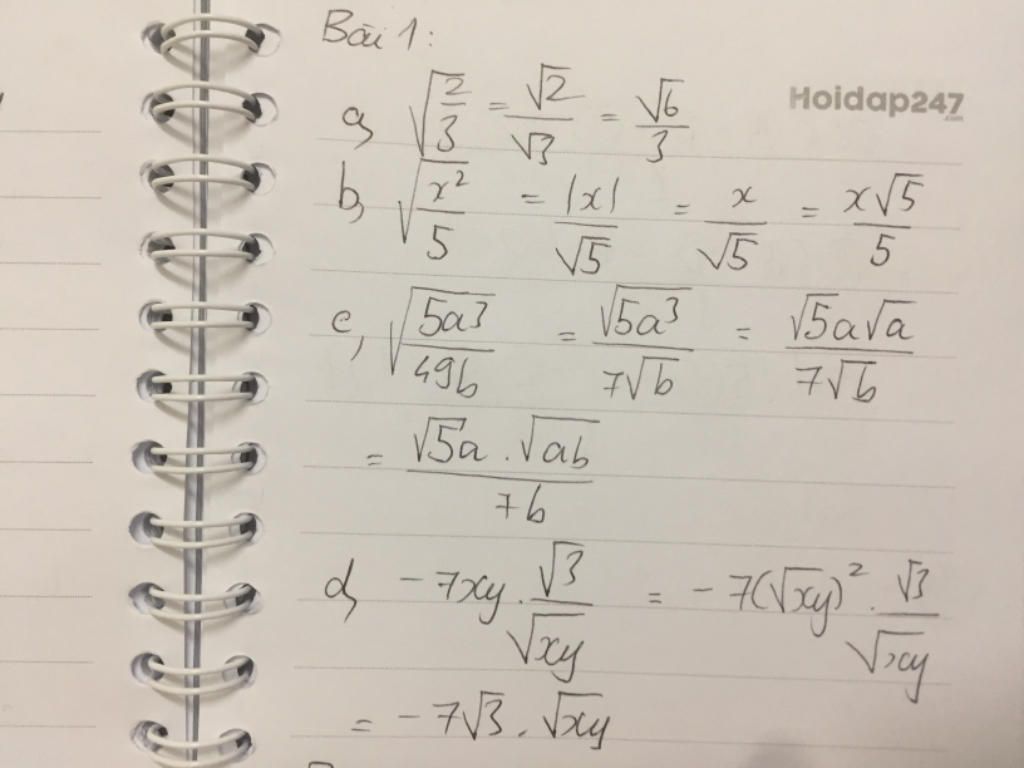 Bài 1:
Hoidap247.com
a, √(2/3) = √2/√3 = √6/3
b, √(x²/5) = |x|/√5 = x/√5 = x√5/5
c, √(5a³/49b) = √(5a³)/(7√b) = √5a√a/(7√b)
= √5a . √(ab)/(7b)
d, -7xy . √3/√(xy) = -7(√(xy))² . √3/√(xy)
= -7√3 . √(xy)